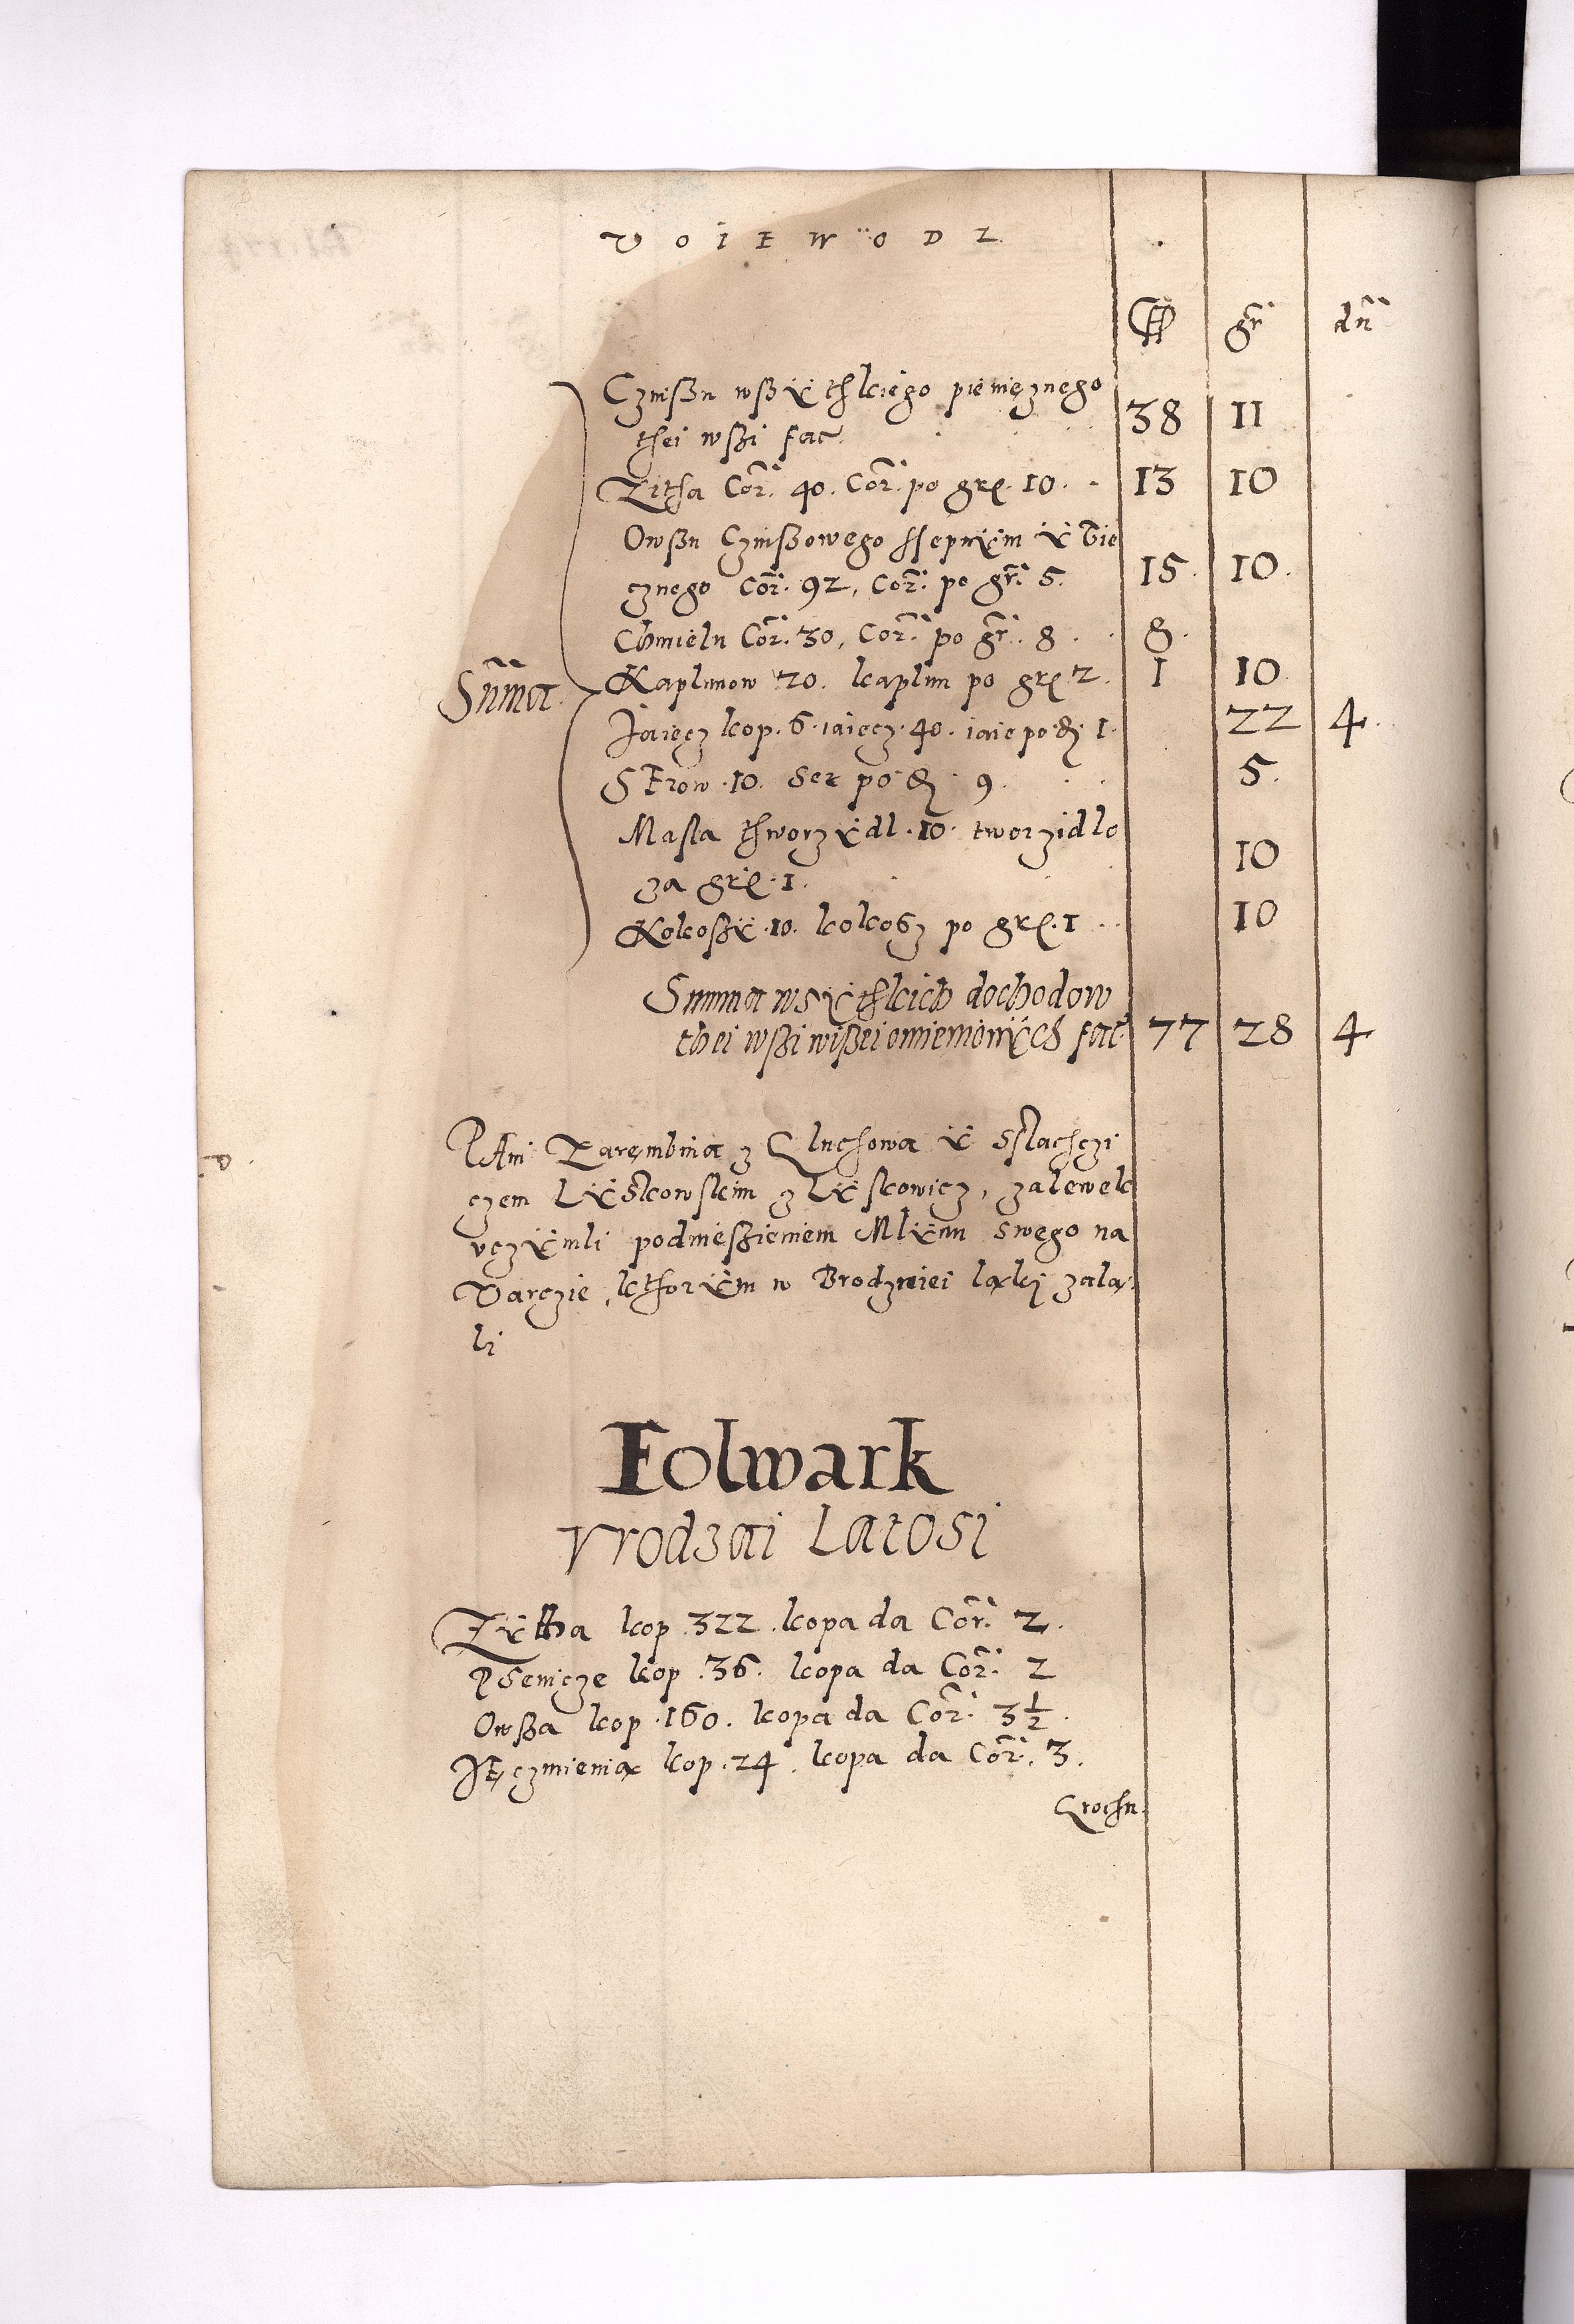 VOIEWODZ
fl gr̃ dñ
Czinssu wssÿthkiego pieniężnego
thei wssi fac̃ 38 11
Zitha Cor̃. 40. Cor̃. po grę. 10. 13 10
Owssu Czinssowego ssepnÿm ÿ Die
cznego Cor̃. 92, Cor̃. po gr̃. 5. 15. 10.
Chmielu Cor̃. 30, Cor̃. po gr̃. 8 8.
Sum̃a Kaplunow 20. kaplun po grę 2. 1 10
Jaięcz kop. 6. iaięcz. 40. iaie po đ 1. 22 4.
SErow. 10. Ser po đ. 9. 5.
Masla thworzÿdl. 10. tworzidlo
za grę. 1. 10
Kokossÿ. 10. kokosz po grę. 1 10
Summa wsÿthkich dochodow
thei wssi wissei omienionÿch fac̃. 77 28 4
PAni Zarembina z Gluchowa ÿ Sslachczi
czem Lÿskowskim z Lÿskowicz, zalewek
vczÿnili podniessieniem Mlÿnu swego na
Varczie, kthorÿm w Brodzniei laki zala
li
Folwark
Vrodzai Latosi
Zÿtha kop. 322. kopa da Cor̃. 2.
Psenicze kop. 36. kopa da Cor̃. 2
Owssa kop. 160. kopa da Cor̃. 3 1/2.
JEczmienia kop. 24. kopa da Cor̃. 3.
Grochu.